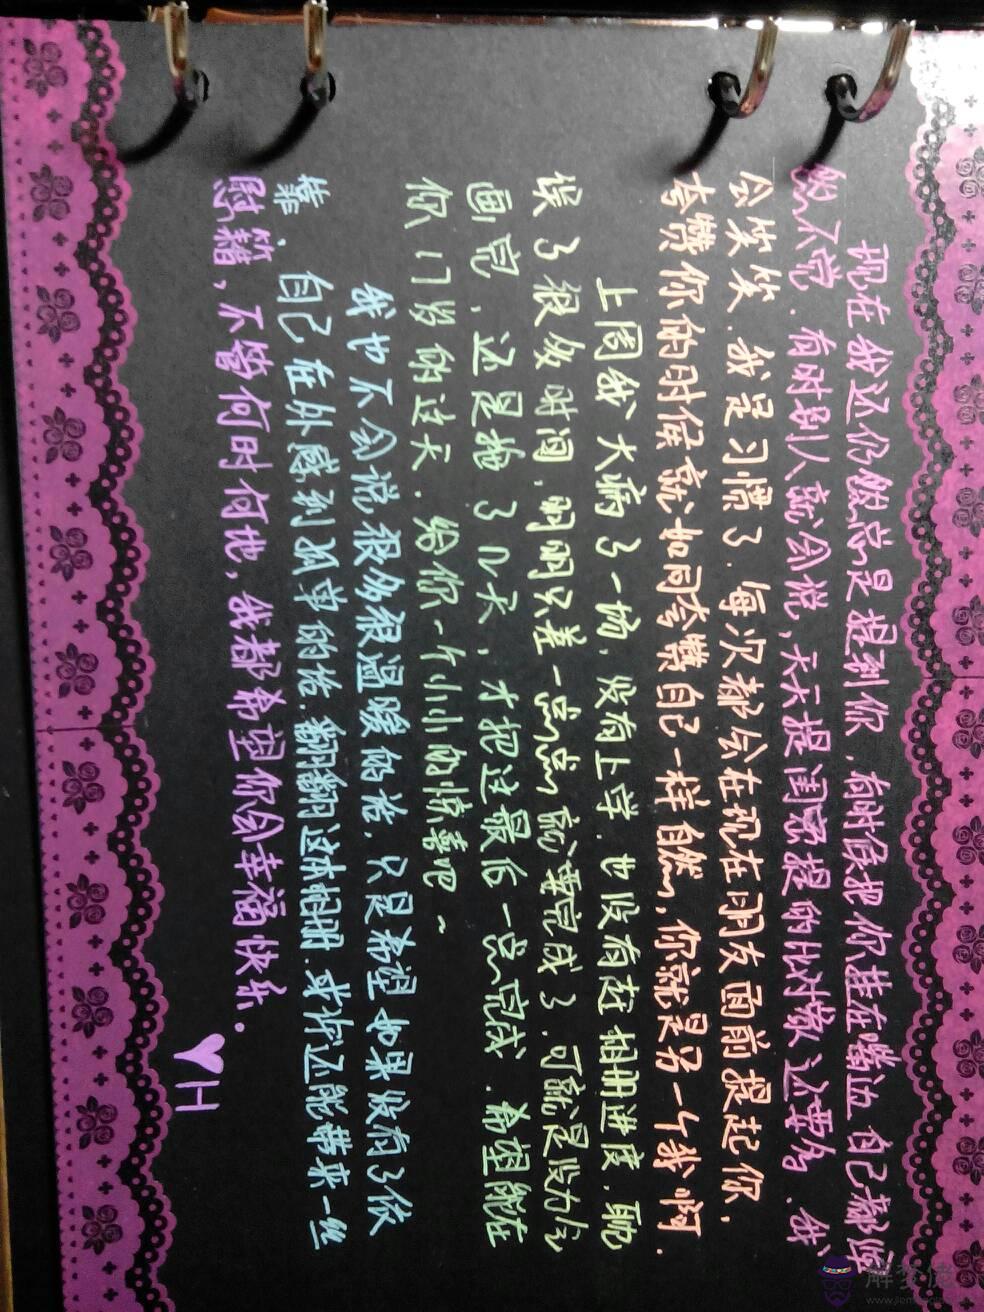 现在我还仍然总是提到你，有时候把你挂在嘴边自己都浑
然不觉．有时别人就会说，天天提闺密提的比对象还要多．我
会笑笑．我是习惯了．每次都会在现在朋友面前提起你，
夸赞你的时候就如同夸赞自己一样自然，你就是另一个我啊．
上周我大病了一场，没有上学．也没有赶相册进度．耽
误了很多时间，明明只差一点点就要完成了．可就是没力气
画完，还是拖了几天，才把这最后一点完成．希望能在
你17岁的这天．给你一个小小的惊喜吧～
我也不会说很多很温暖的话，只是希望如果没有了依
靠．自己在外感到孤单的话．翻翻这本相册．或许还能带来一丝
慰籍，不管何时何地，我都希望你会幸福快乐。
♥YH
解梦佬